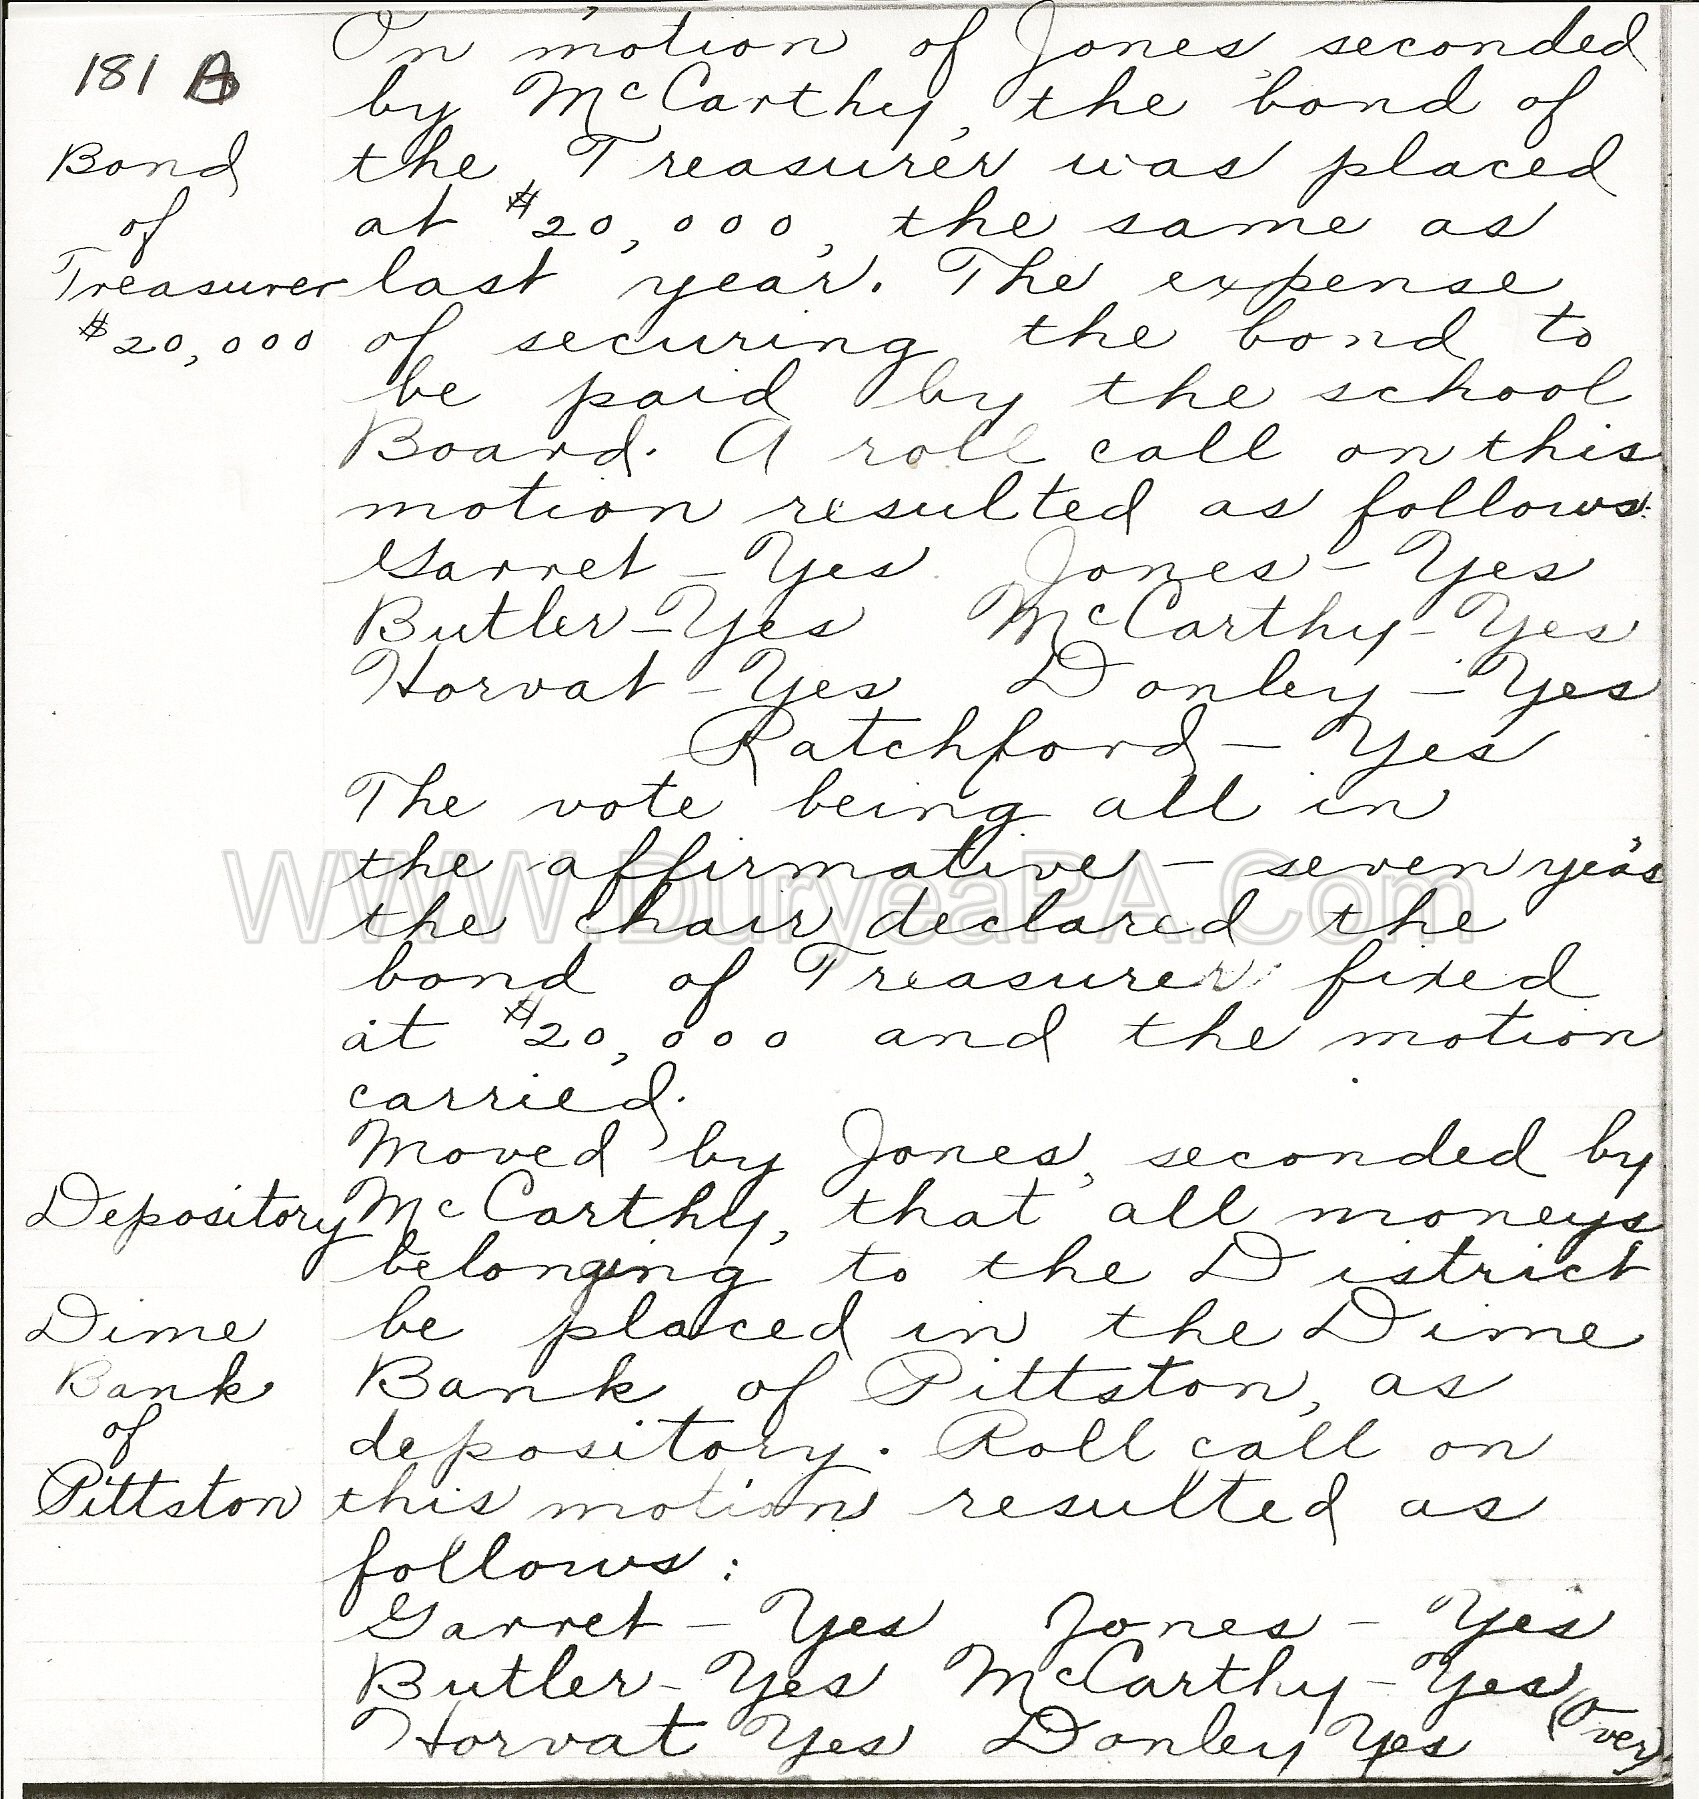 181 A
On motion of Jones, seconded
by McCarthy, the bond of
Bond
the Treasurer was placed
of
at $20,000, the same as
Treasurer
last year. The expense
$20,000
of securing the bond to
be paid by the school
Board. A roll call on this
motion resulted as follows:
Garret - Yes Jones - Yes
Butler - Yes McCarthy - Yes
Horvat - Yes Donley - Yes
Ratchford - Yes
The vote being all in
the affirmative - seven yeas
WWW.DuryeaPA.Com
the chair declared the
bond of Treasurer fixed
at $20,000 and the motion
carried.
Moved by Jones, seconded by
Depository
McCarthy, that all moneys
belonging to the District
Dime
be placed in the Dime
Bank
Bank of Pittston, as
of
depository. Roll call on
Pittston
this motion resulted as
follows:
Garret - Yes Jones - Yes
Butler - Yes McCarthy - Yes
Horvat Yes Donley Yes
(Over)